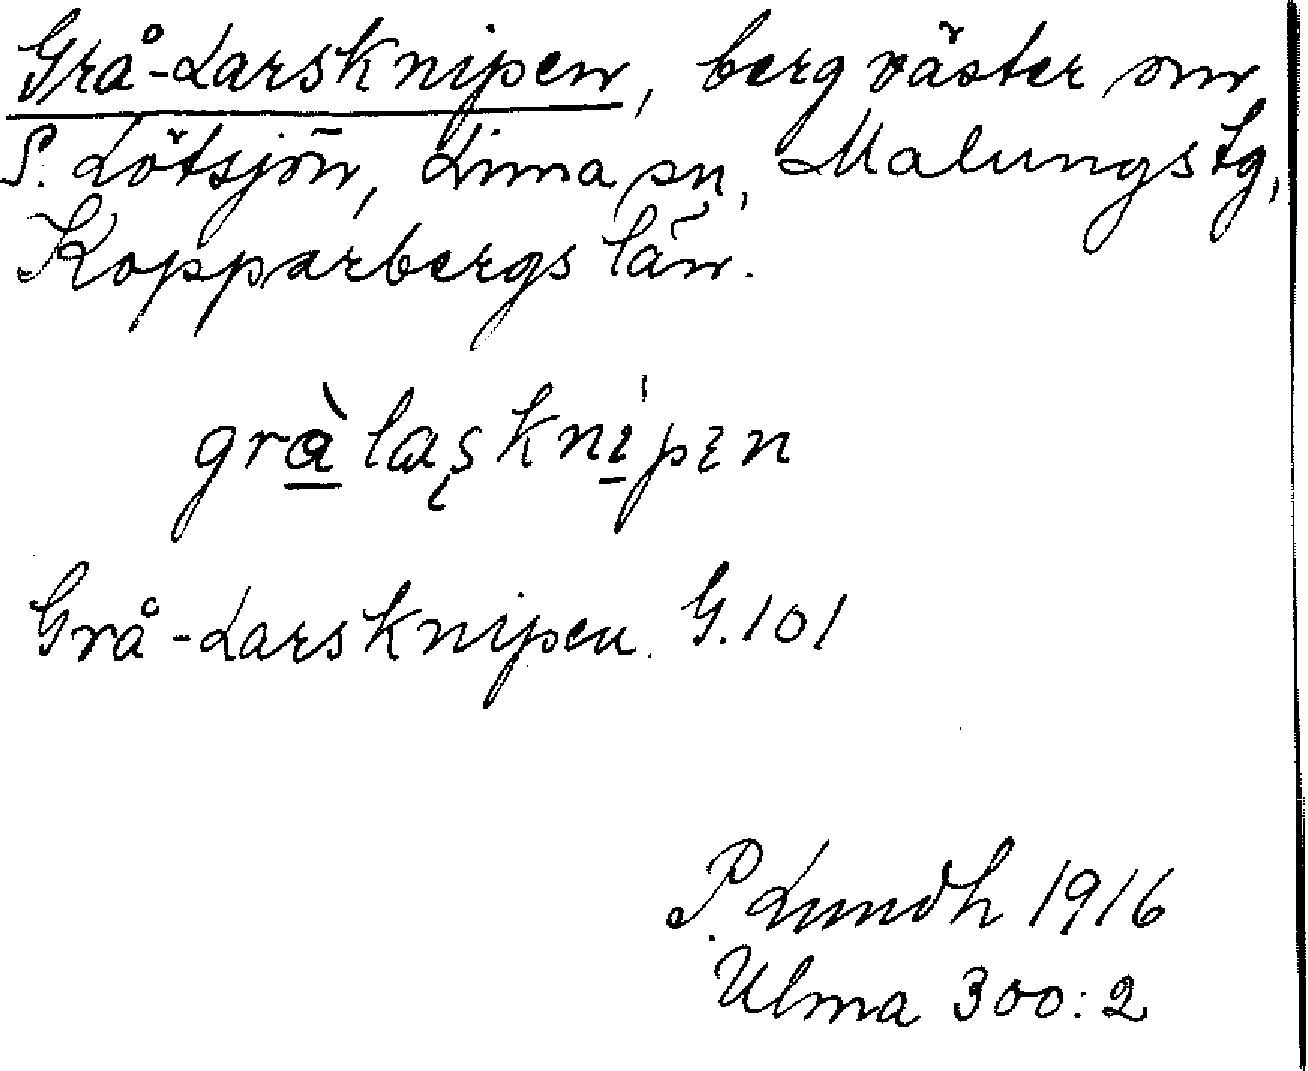 Grå-Larsknipen, berg väster om
S. Lötsjön, Lima sn, Malungs tg,
Kopparbergs län.
grà̱laʂkní̱pɛn
Grå-Larsknipen. G. 101
P. Lundh 1916
Ulma 300:2